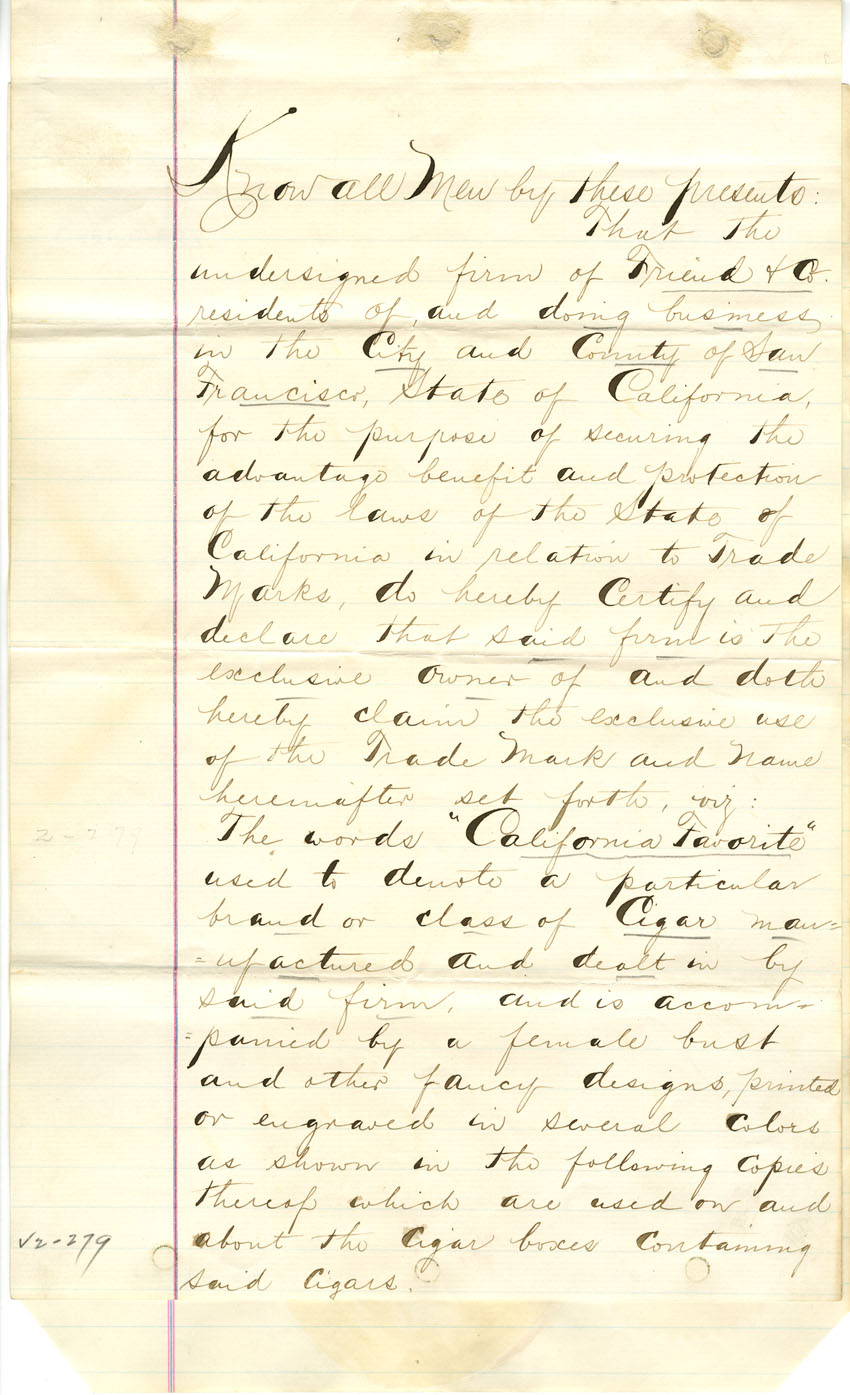 Know all Men by these presents:
That the
undersigned firm of Friend & Co.
residents of, and doing business
in the City and County of San
Francisco, State of California,
for the purpose of securing the
advantage benefit and protection
of the laws of the State of
California in relation to Trade
Marks, do hereby Certify and
declare that said firm is the
exclusive owner of and doth
hereby claim the exclusive use
of the Trade Mark and Name
hereinafter set forth, viz:
The words "California Favorite"
used to denote a particular
brand or class of Cigar man=
=ufactured and dealt in by
said firm, and is accom=
=panied by a female bust
and other fancy designs, printed
or engraved in several Colors
as shown in the following Copies
thereof which are used on and
about the Cigar boxes Containing
said Cigars.
2-279
V2-279